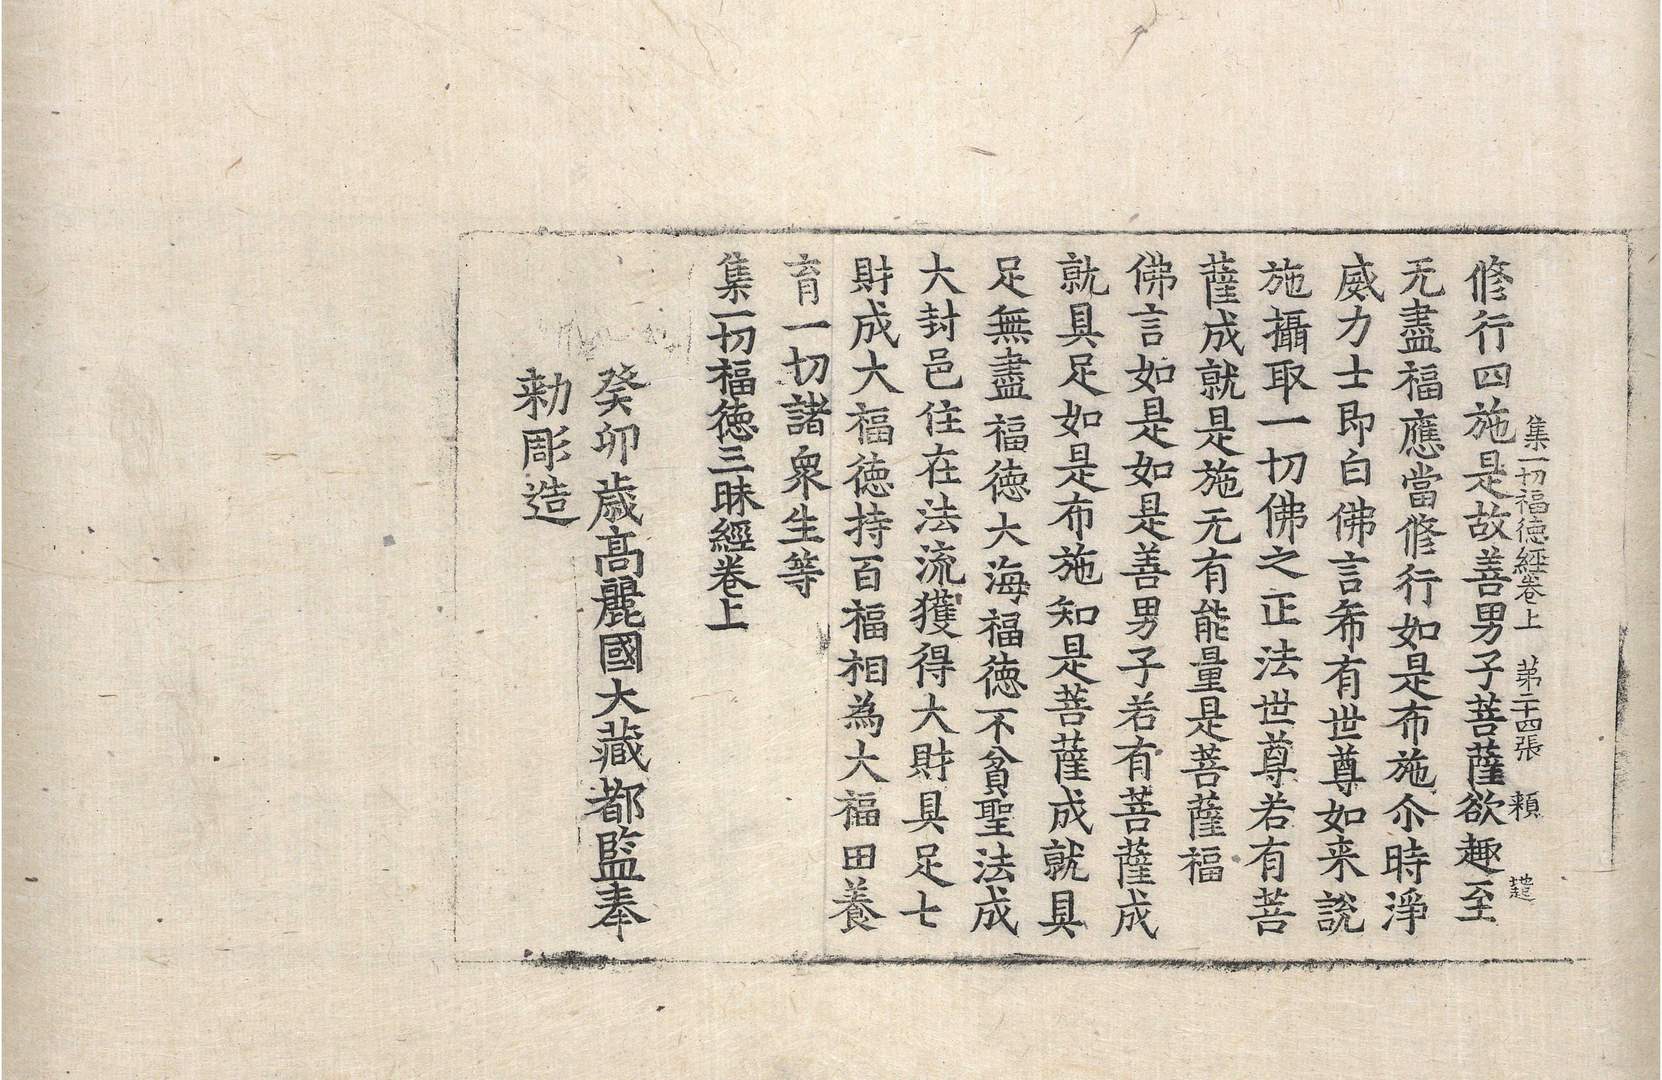 集一切福德經卷上　第二十四張　頼
修行四施是故善男子菩薩欲趣至
无盡福應當修行如是布施尒時淨
威力士即白佛言希有世尊如来說
施攝取一切佛之正法世尊若有菩
薩成就是施无有能量是菩薩福
佛言如是如是善男子若有菩薩成
就具足如是布施知是菩薩成就具
足無盡福德大海福德不貧聖法成
大封邑住在法流獲得大財具足七
財成大福德持百福相為大福田養
育一切諸衆生等
集一切福德三昧經卷上
癸卯歲高麗國大藏都監奉
勑彫造